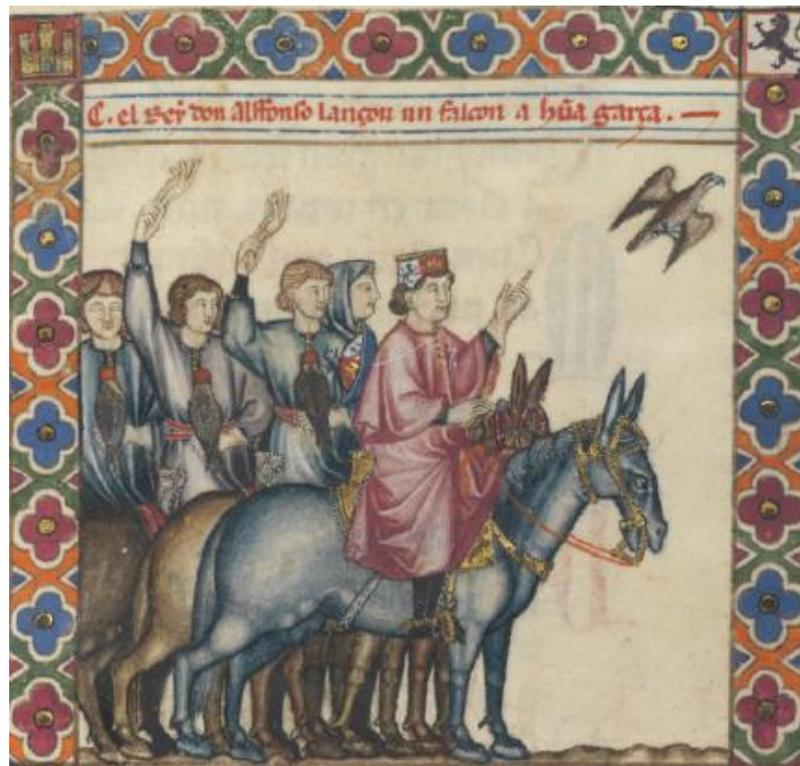 C. el Rey don Alffonso lançou un falcon a hũa garça.